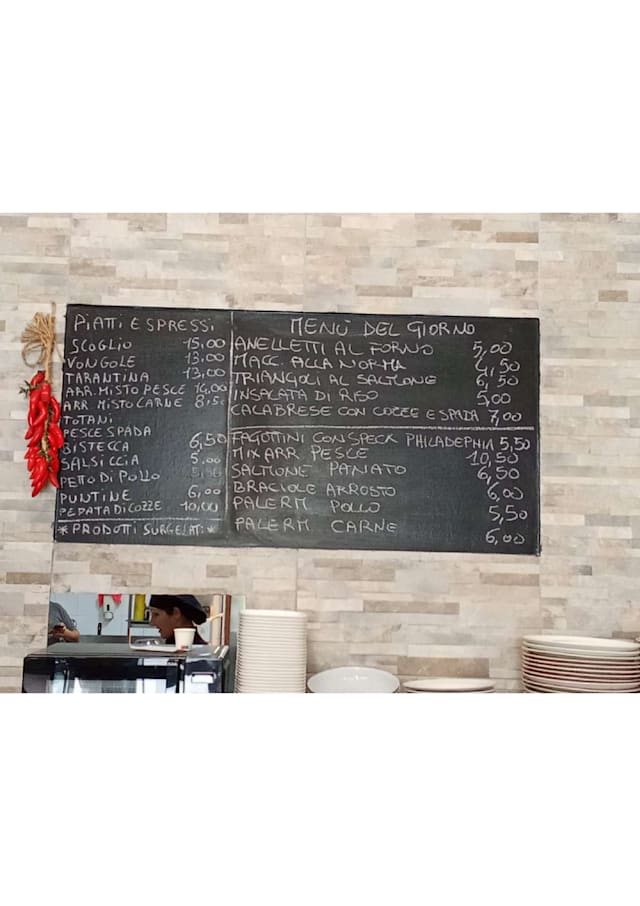 PIATTI ESPRESSI
SCOGLIO 15,00
VONGOLE 13,00
TARANTINA 13,00
ARR. MISTO PESCE 14,00
ARR MISTO CARNE 8,50
TOTANI
PESCE SPADA
BISTECCA 6,50
SALSICCIA 5,00
PETTO DI POLLO
PUNTINE 6,00
PEPATA DI COZZE 10,00
*PRODOTTI SURGELATI*
MENÙ DEL GIORNO
ANELLETTI AL FORNO 5,00
MACC. ALLA NORMA 4,50
TRIANGOLI AL SALMONE 6,50
INSALATA DI RISO 5,00
CALABRESE CON COZZE E SPADA 7,00
FAGOTTINI CON SPECK PHILADEPHIA 5,50
MIX ARR PESCE 10,50
SALMONE PANATO 6,50
BRACIOLE ARROSTO 6,00
PALERM POLLO 5,50
PALERM CARNE 6,00